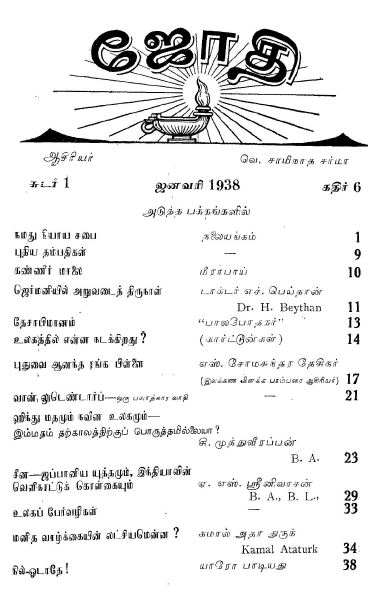 ஜோதி
ஆசிரியர் வெ. சாமிநாத சர்மா
சுடர் 1 ஜனவரி 1938 கதிர் 6
அடுத்த பக்கங்களில்
நமது நியாய சபை தலையங்கம் 1
புதிய தம்பதிகள் — 9
கண்ணீர் மாலை மீராபாய் 10
ஜெர்மனியில் அறுவடைத் திருநாள் டாக்டர் எச். பெய்தான்
Dr. H. Beythan 11
தேசாபிமானம் "பாலபோதகர்" 13
உலகத்தில் என்ன நடக்கிறது? (கார்ட்டூன்கள்) 14
புதுவை ஆனந்த ரங்க பிள்ளை எஸ். சோமசுந்தர தேசிகர்
(இலக்கண விளக்க பரம்பரை ஆசிரியர்) 17
வான் லுடெண்டார்ப்—ஒரு பலாத்கார வாதி — 21
ஹிந்து மதமும் நவீன உலகமும்—
இம்மதம் தற்காலத்திற்குப் பொருத்தமில்லையா?
கி. முத்துவீரப்பன்
B. A. 23
சீன—ஜப்பானிய யுத்தமும், இந்தியாவின்
வெளிநாட்டுக் கொள்கையும் ஏ. எஸ். ஸ்ரீனிவாசன்
B. A., B. L., 29
உலகப் பேர்வழிகள் — 33
மனித வாழ்க்கையின் லட்சியமென்ன? கமால் அதா துருக்
Kamal Ataturk 34
நில்-ஓடாதே! யாரோ பாடியது 38